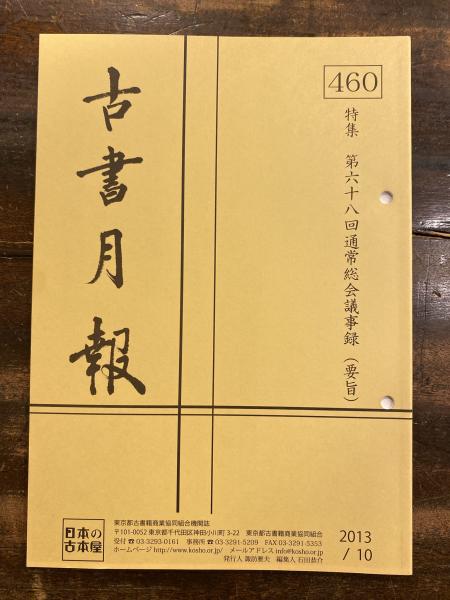 460
特集 第六十八回通常総会議事録(要旨)
古書月報
日本の
古本屋
東京都古書籍商業協同組合機関誌
〒101-0052 東京都千代田区神田小川町 3-22 東京都古書籍商業協同組合
受付 ☎ 03-3293-0161 事務所 ☎ 03-3291-5209 FAX 03-3291-5353
ホームページ http://www.kosho.or.jp/ メールアドレス info@kosho.or.jp
発行人 諏訪雅夫 編集人 石田恭介
2013
/ 10